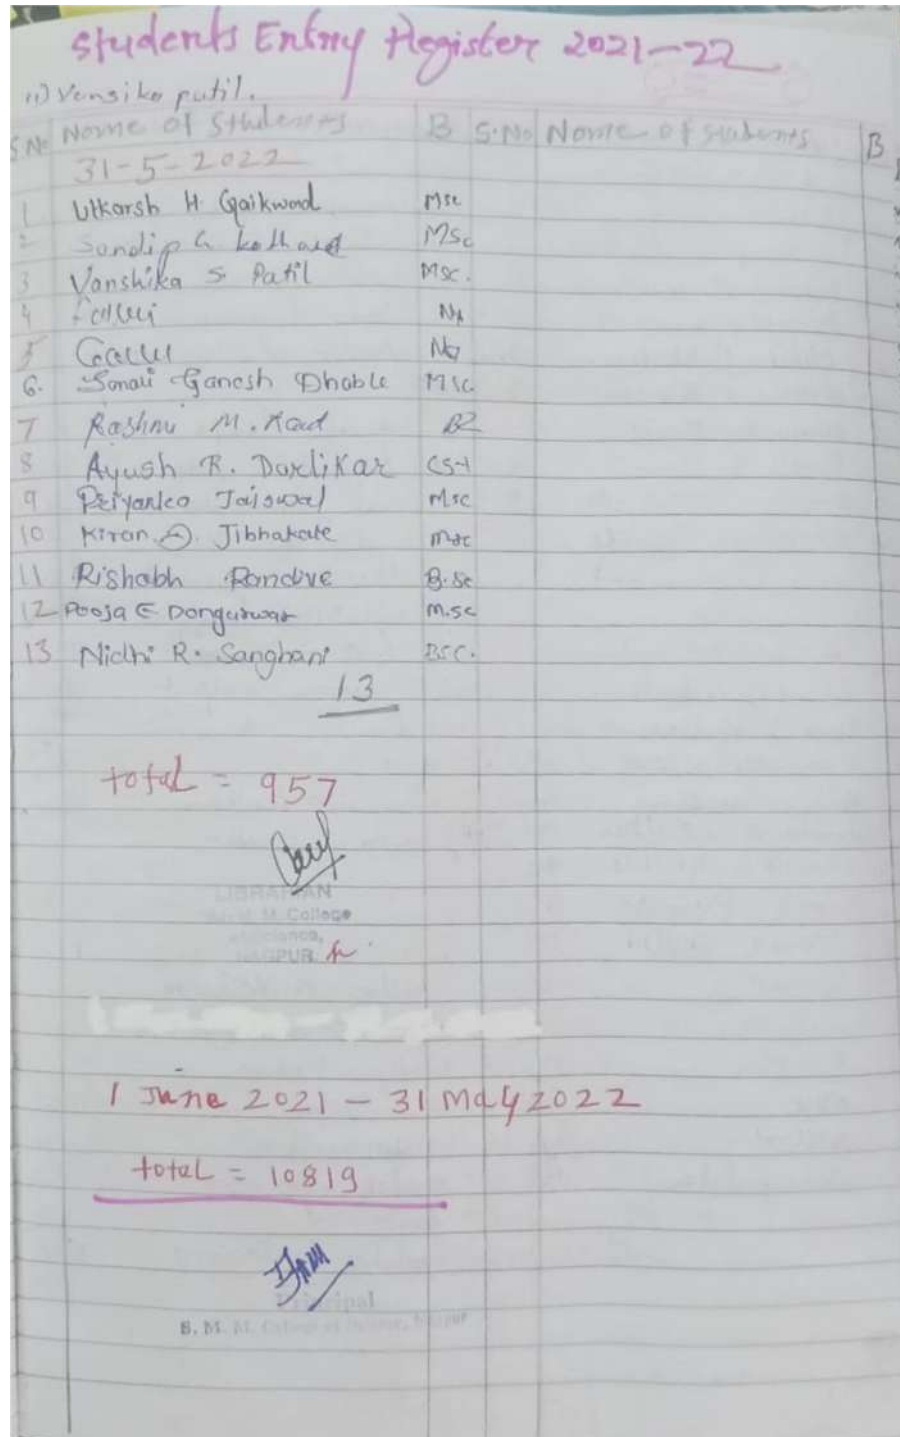 Students Entry Register 2021-22
11) Vensika patil.
S.No Name of Students B S.No Name of students B
31-5-2022
1 Utkarsh H. Gaikwad Msc
2 Sandip G MSc
3 Vanshika S. Patil MSC.
4
5
6. Sonali Ganesh Dhable MSc
7 Rashmi M. BZ
8 Ayush R. Darlikar CS-1
9 Priyanka Jaiswal Msc
10 Kiran Jibhakate msc
11 Rishabh Ramdive B.Sc
12 Pooja E Dongarwar M.sc
13 Nidhi R. Sanghani BSC.
13
total = 957
LIBRARIAN
M. College
NAGPUR
1 June 2021 - 31 May 2022
total = 10819
Principal
B. M.